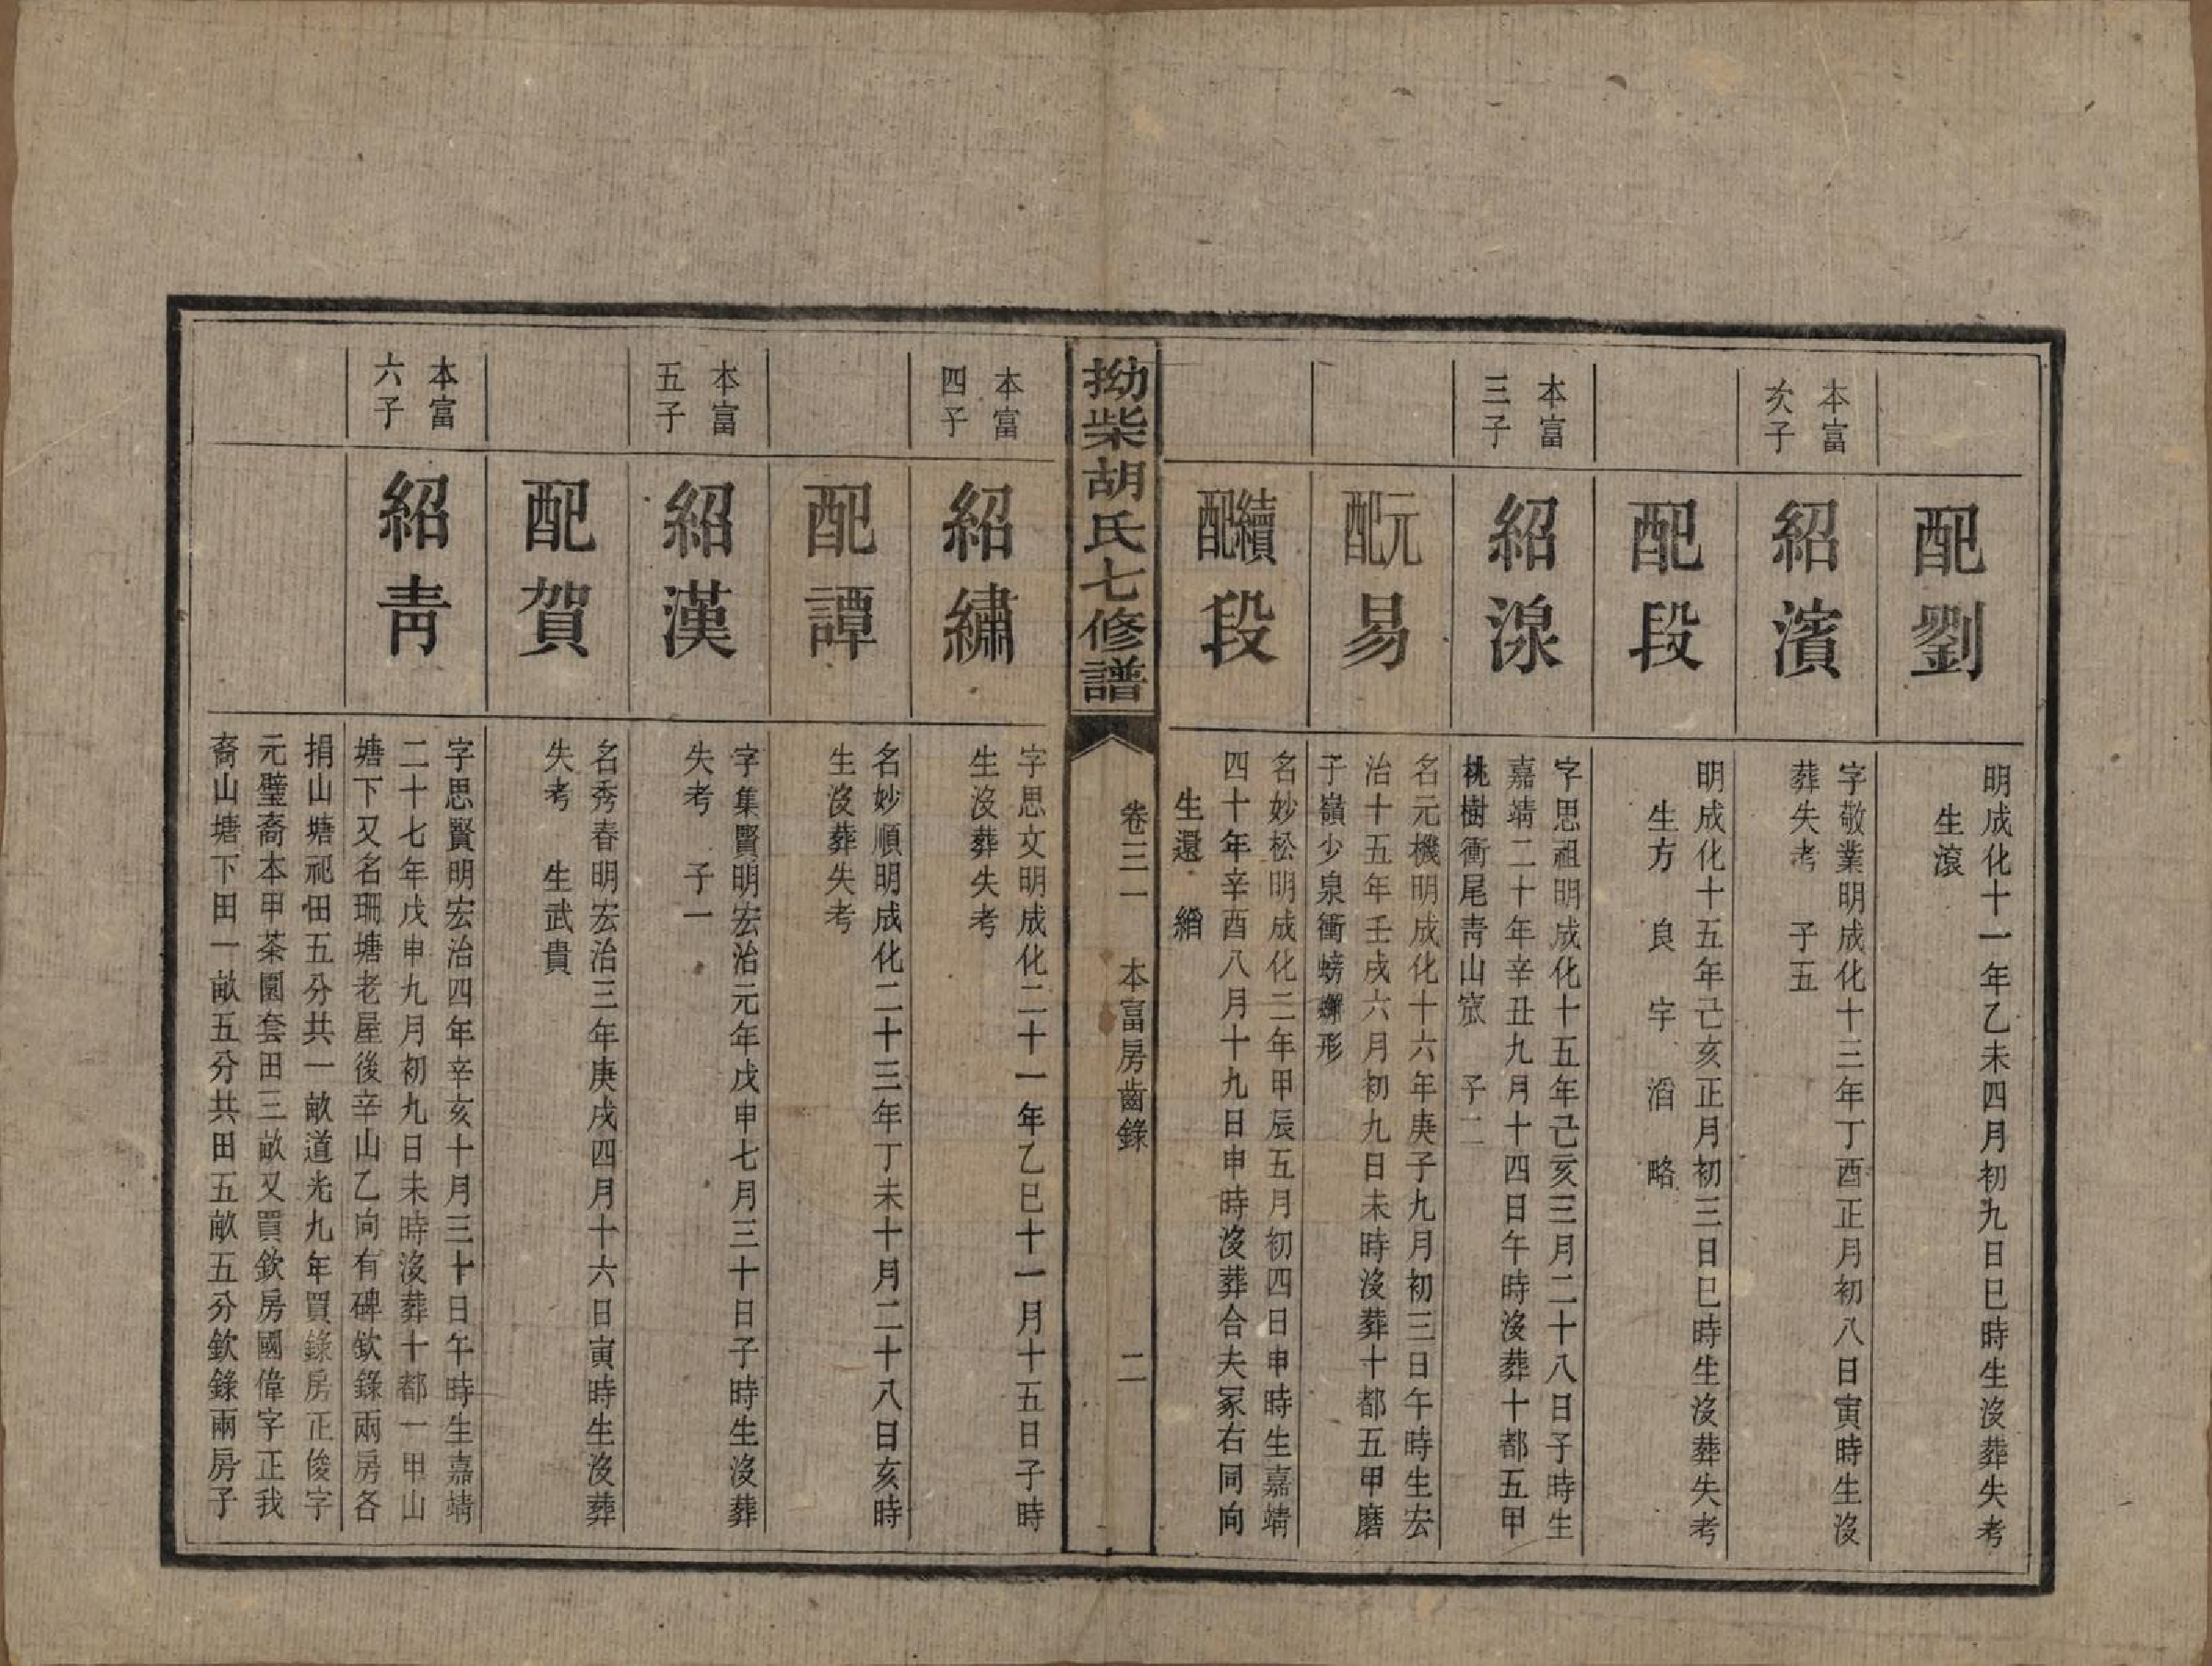 配劉
明成化十一年乙未四月初九日巳時生沒葬失考
生滾
本富
次子
紹濱
字敬業明成化十三年丁酉正月初八日寅時生沒
葬失考 子五
配段
明成化十五年己亥正月初三日巳時生沒葬失考
生方 良 宇 滔 略
本富
三子
紹湶
字思祖明成化十五年己亥三月二十八日子時生
嘉靖二十年辛丑九月十四日午時沒葬十都五甲
桃樹衝尾靑山窊 子二
元配易
名元機明成化十六年庚子九月初三日午時生宏
治十五年壬戌六月初九日未時沒葬十都五甲磨
子嶺少泉衝螃蠏形
續配段
名妙松明成化二年甲辰五月初四日申時生嘉靖
四十年辛酉八月十九日申時沒葬合夫冢右同向
生還 緇
拗柴胡氏七修譜
卷三一
本富房齒錄
二
本富
四子
紹繡
字思文明成化二十一年乙巳十一月十五日子時
生沒葬失考
配譚
名妙順明成化二十三年丁未十月二十八日亥時
生沒葬失考
本富
五子
紹漢
字集賢明宏治元年戊申七月三十日子時生沒葬
失考 子一
配賀
名秀春明宏治三年庚戌四月十六日寅時生沒葬
失考 生武貴
本富
六子
紹靑
字思賢明宏治四年辛亥十月三十日午時生嘉靖
二十七年戊申九月初九日未時沒葬十都一甲山
塘下又名珊塘老屋後辛山乙向有碑欽錄兩房各
捐山塘祀田五分共一畝道光九年買錄房正俊字
元璧裔本甲茶園套田三畝又買欽房國偉字正我
裔山塘下田一畝五分共田五畝五分欽錄兩房子